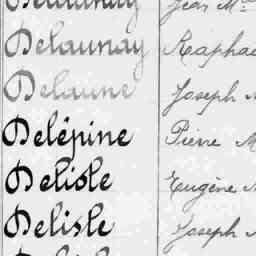 Delaunay Jean M
Delaunay Raphae
Delaune Joseph
Delépine Pierre M
Delisle Eugène
Delisle Joseph